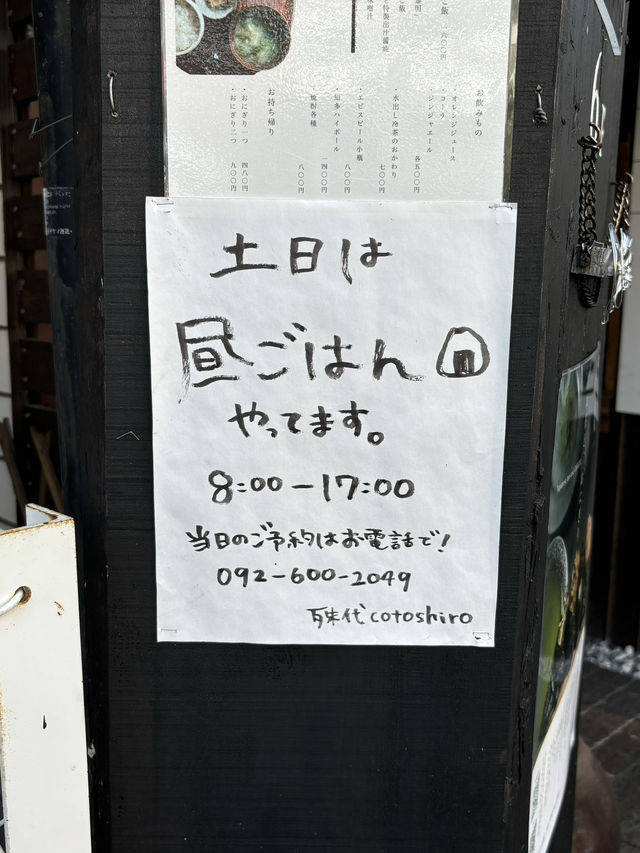 お飲みもの
・オレンジジュース
・コーラ
・ジンジャエール
各五〇〇円
・水出し冷茶のおかわり
七〇〇円
・エビスビール小瓶
八〇〇円
知多ハイボール
一四〇〇円
焼酎各種
八〇〇円
お持ち帰り
・おにぎり一つ 四八〇円
・おにぎり二つ 九〇〇円
土日は
昼ごはん
やってます。
8:00-17:00
当日のご予約はお電話で!
092-600-2049
cotoshiro